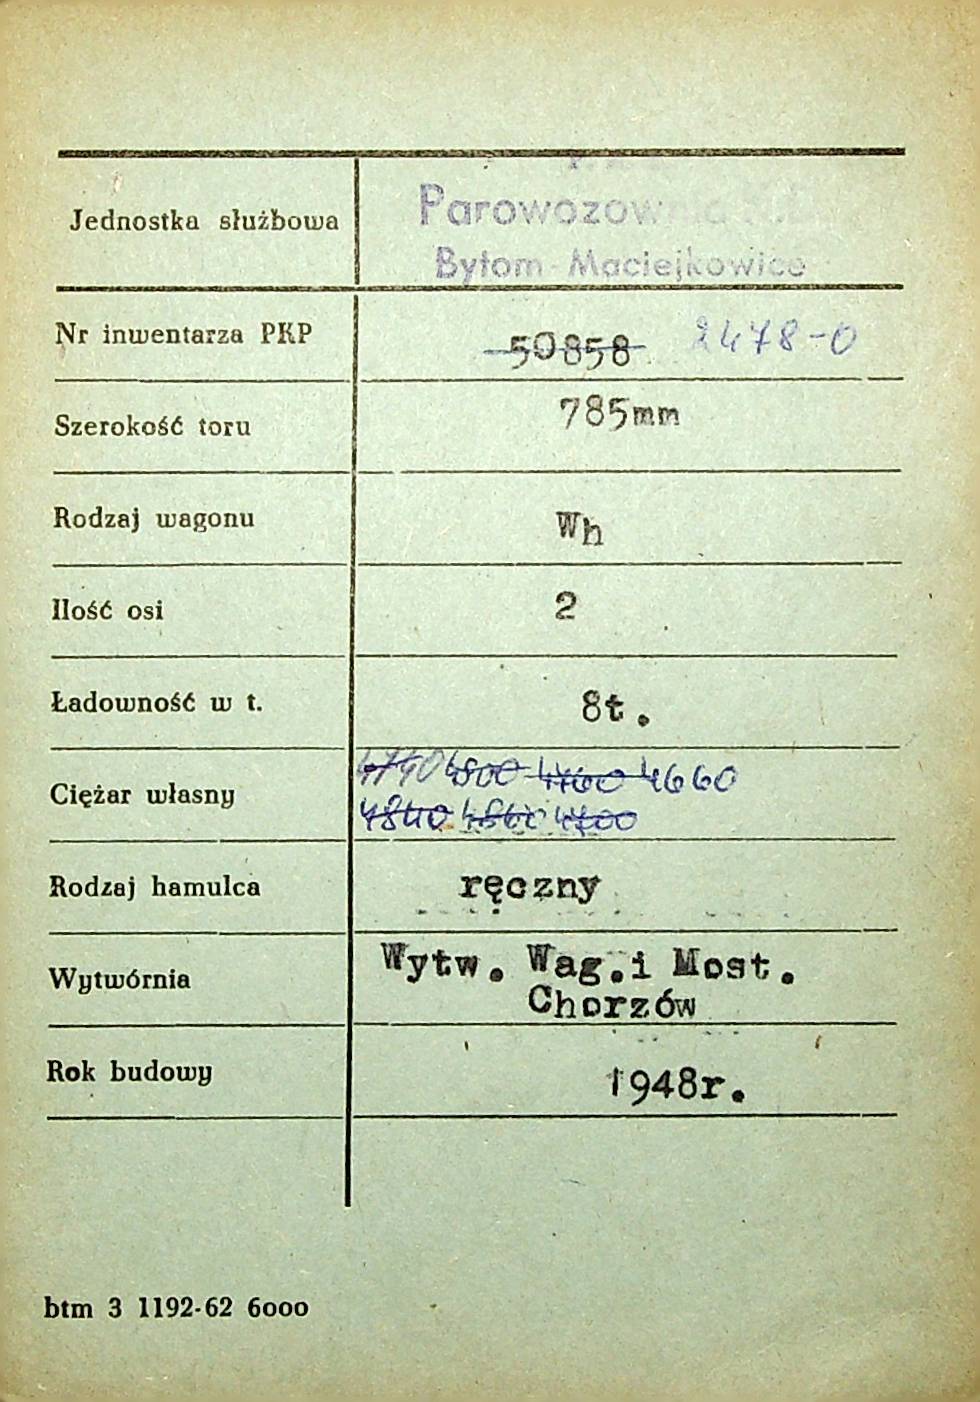 Jednostka służbowa
Parowozownia
Bytom - Maciejkowice
Nr inwentarza PKP 50858 2478-0
Szerokość toru 785mm
Rodzaj wagonu Wh
Ilość osi 2
Ładowność w t. 8t.
Ciężar własny 4740 4800 4760 4660
4840 4700
Rodzaj hamulca ręczny
Wytwórnia Wytw. Wag.i Most.
Chorzów
Rok budowy 1948r.
btm 3 1192-62 6000